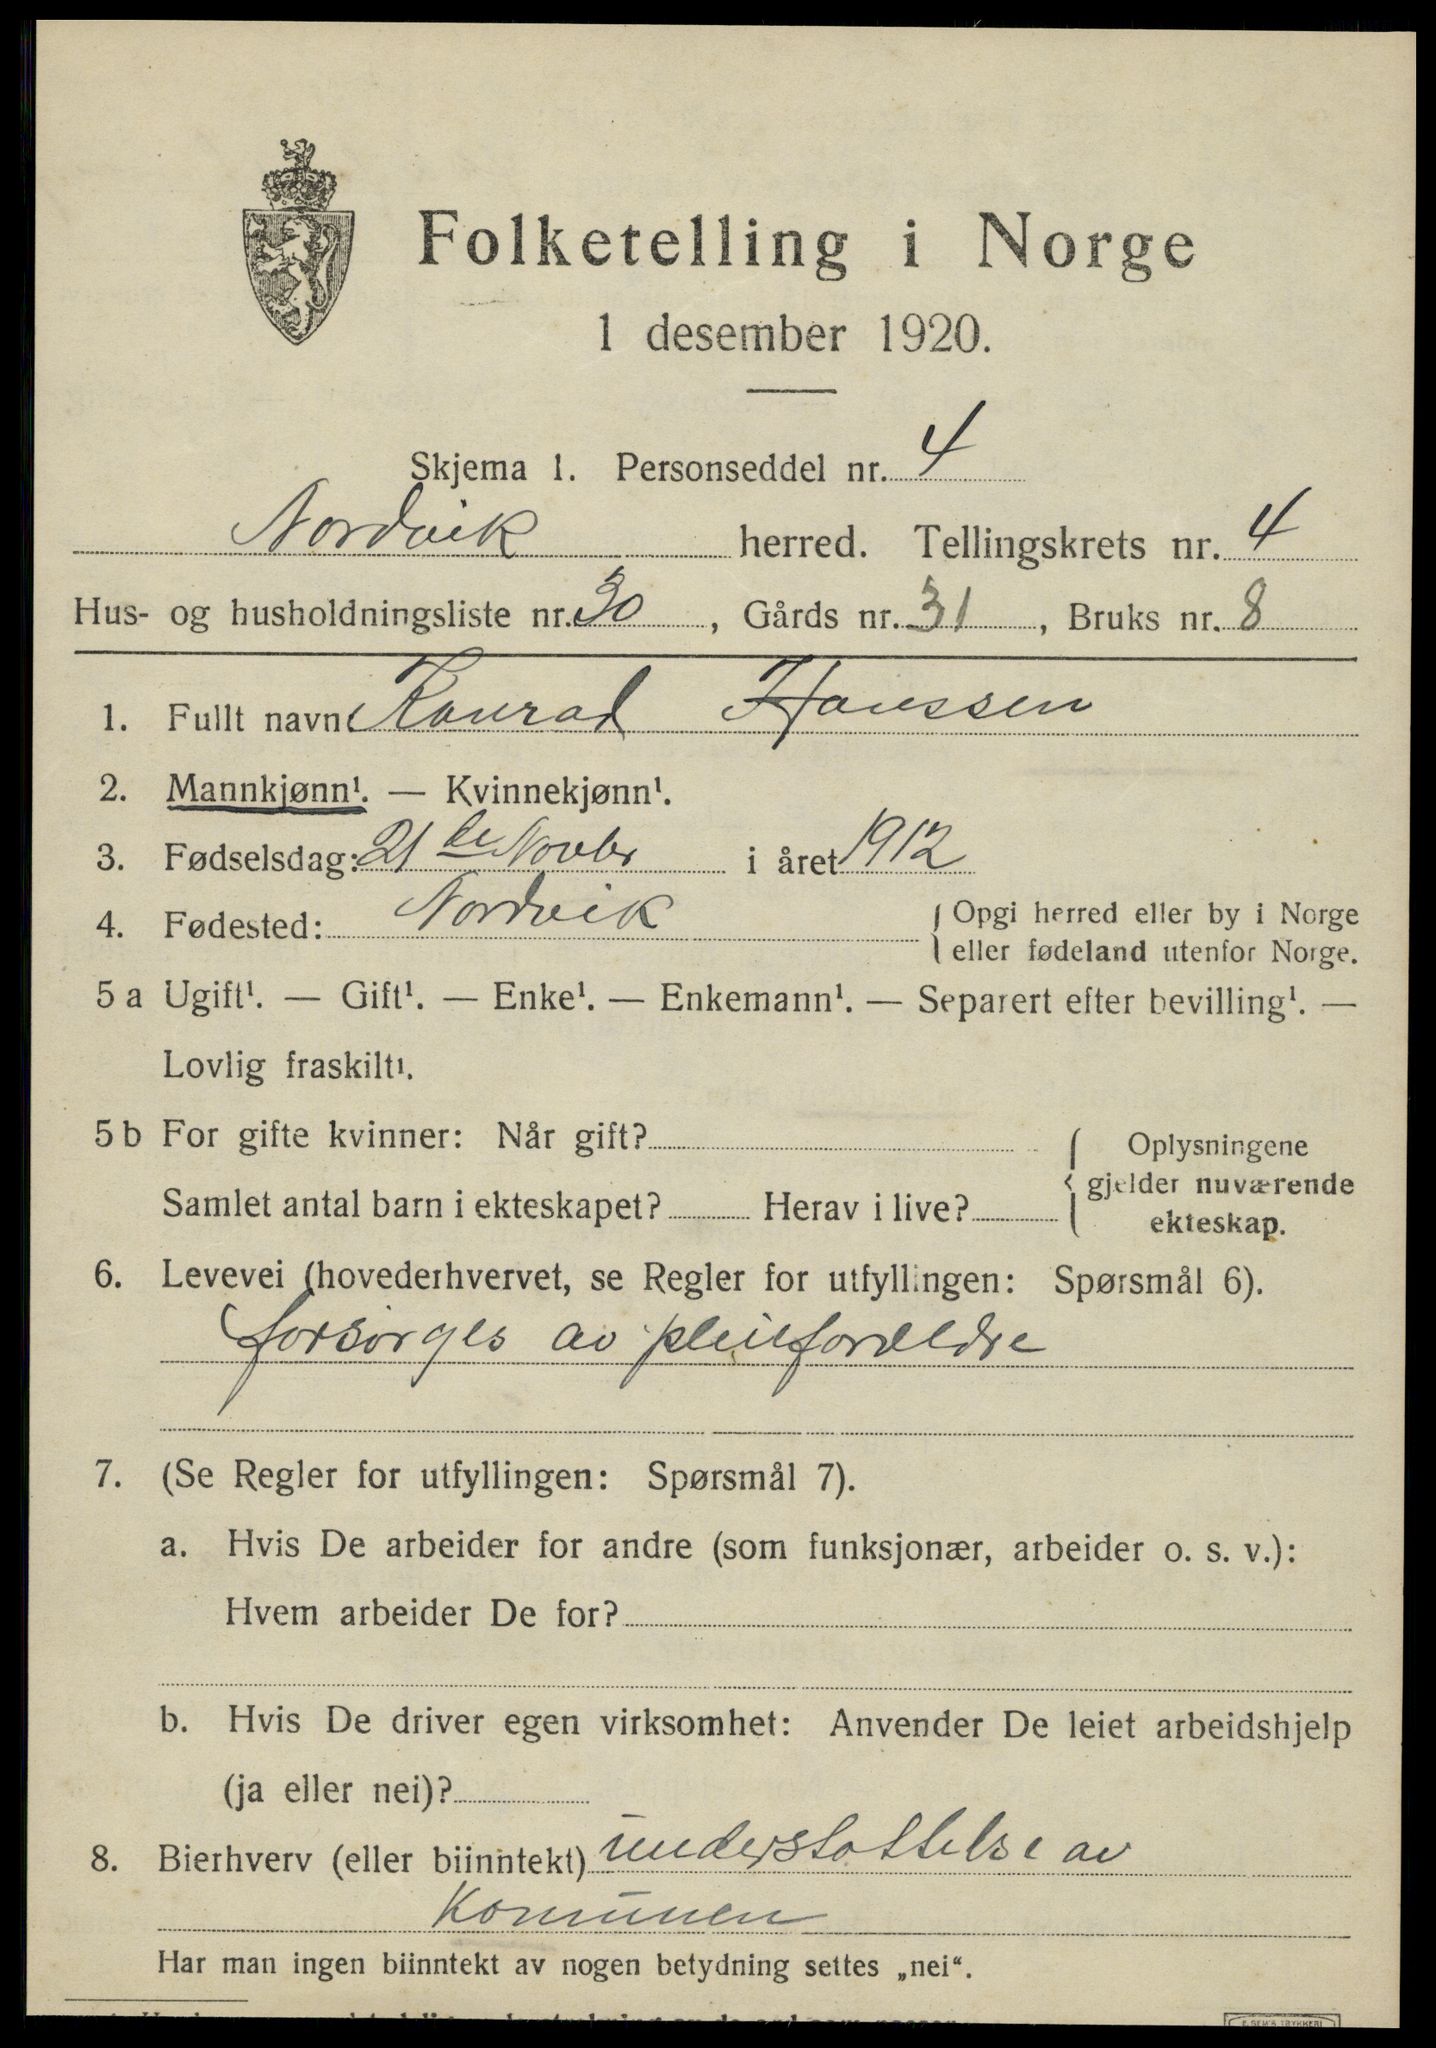 Folketelling i Norge
1 desember 1920.
Skjema 1. Personseddel nr. 4
Nordvik herred. Tellingskrets nr. 4
Hus- og husholdningsliste nr. 30, Gårds nr. 31, Bruks nr. 8
1. Fullt navn: Konrad Hanssen
2. Mannkjønn¹. — Kvinnekjønn¹.
3. Fødselsdag: 21de Novbr i året 1912
4. Fødested: Nordvik { Opgi herred eller by i Norge
eller fødeland utenfor Norge.
5 a Ugift¹. — Gift¹. — Enke¹. — Enkemann¹. — Separert efter bevilling¹. —
Lovlig fraskilt¹.
5 b For gifte kvinner: Når gift? { Oplysningene
gjelder nuværende
Samlet antal barn i ekteskapet? Herav i live?
ekteskap.
6. Levevei (hovederhvervet, se Regler for utfyllingen: Spørsmål 6).
forsørges av pleieforældre
7. (Se Regler for utfyllingen: Spørsmål 7).
a. Hvis De arbeider for andre (som funksjonær, arbeider o. s. v.):
Hvem arbeider De for?
b. Hvis De driver egen virksomhet: Anvender De leiet arbeidshjelp
(ja eller nei)?
8. Bierhverv (eller biinntekt) understøttelse av
Komunen
Har man ingen biinntekt av nogen betydning settes „nei“.